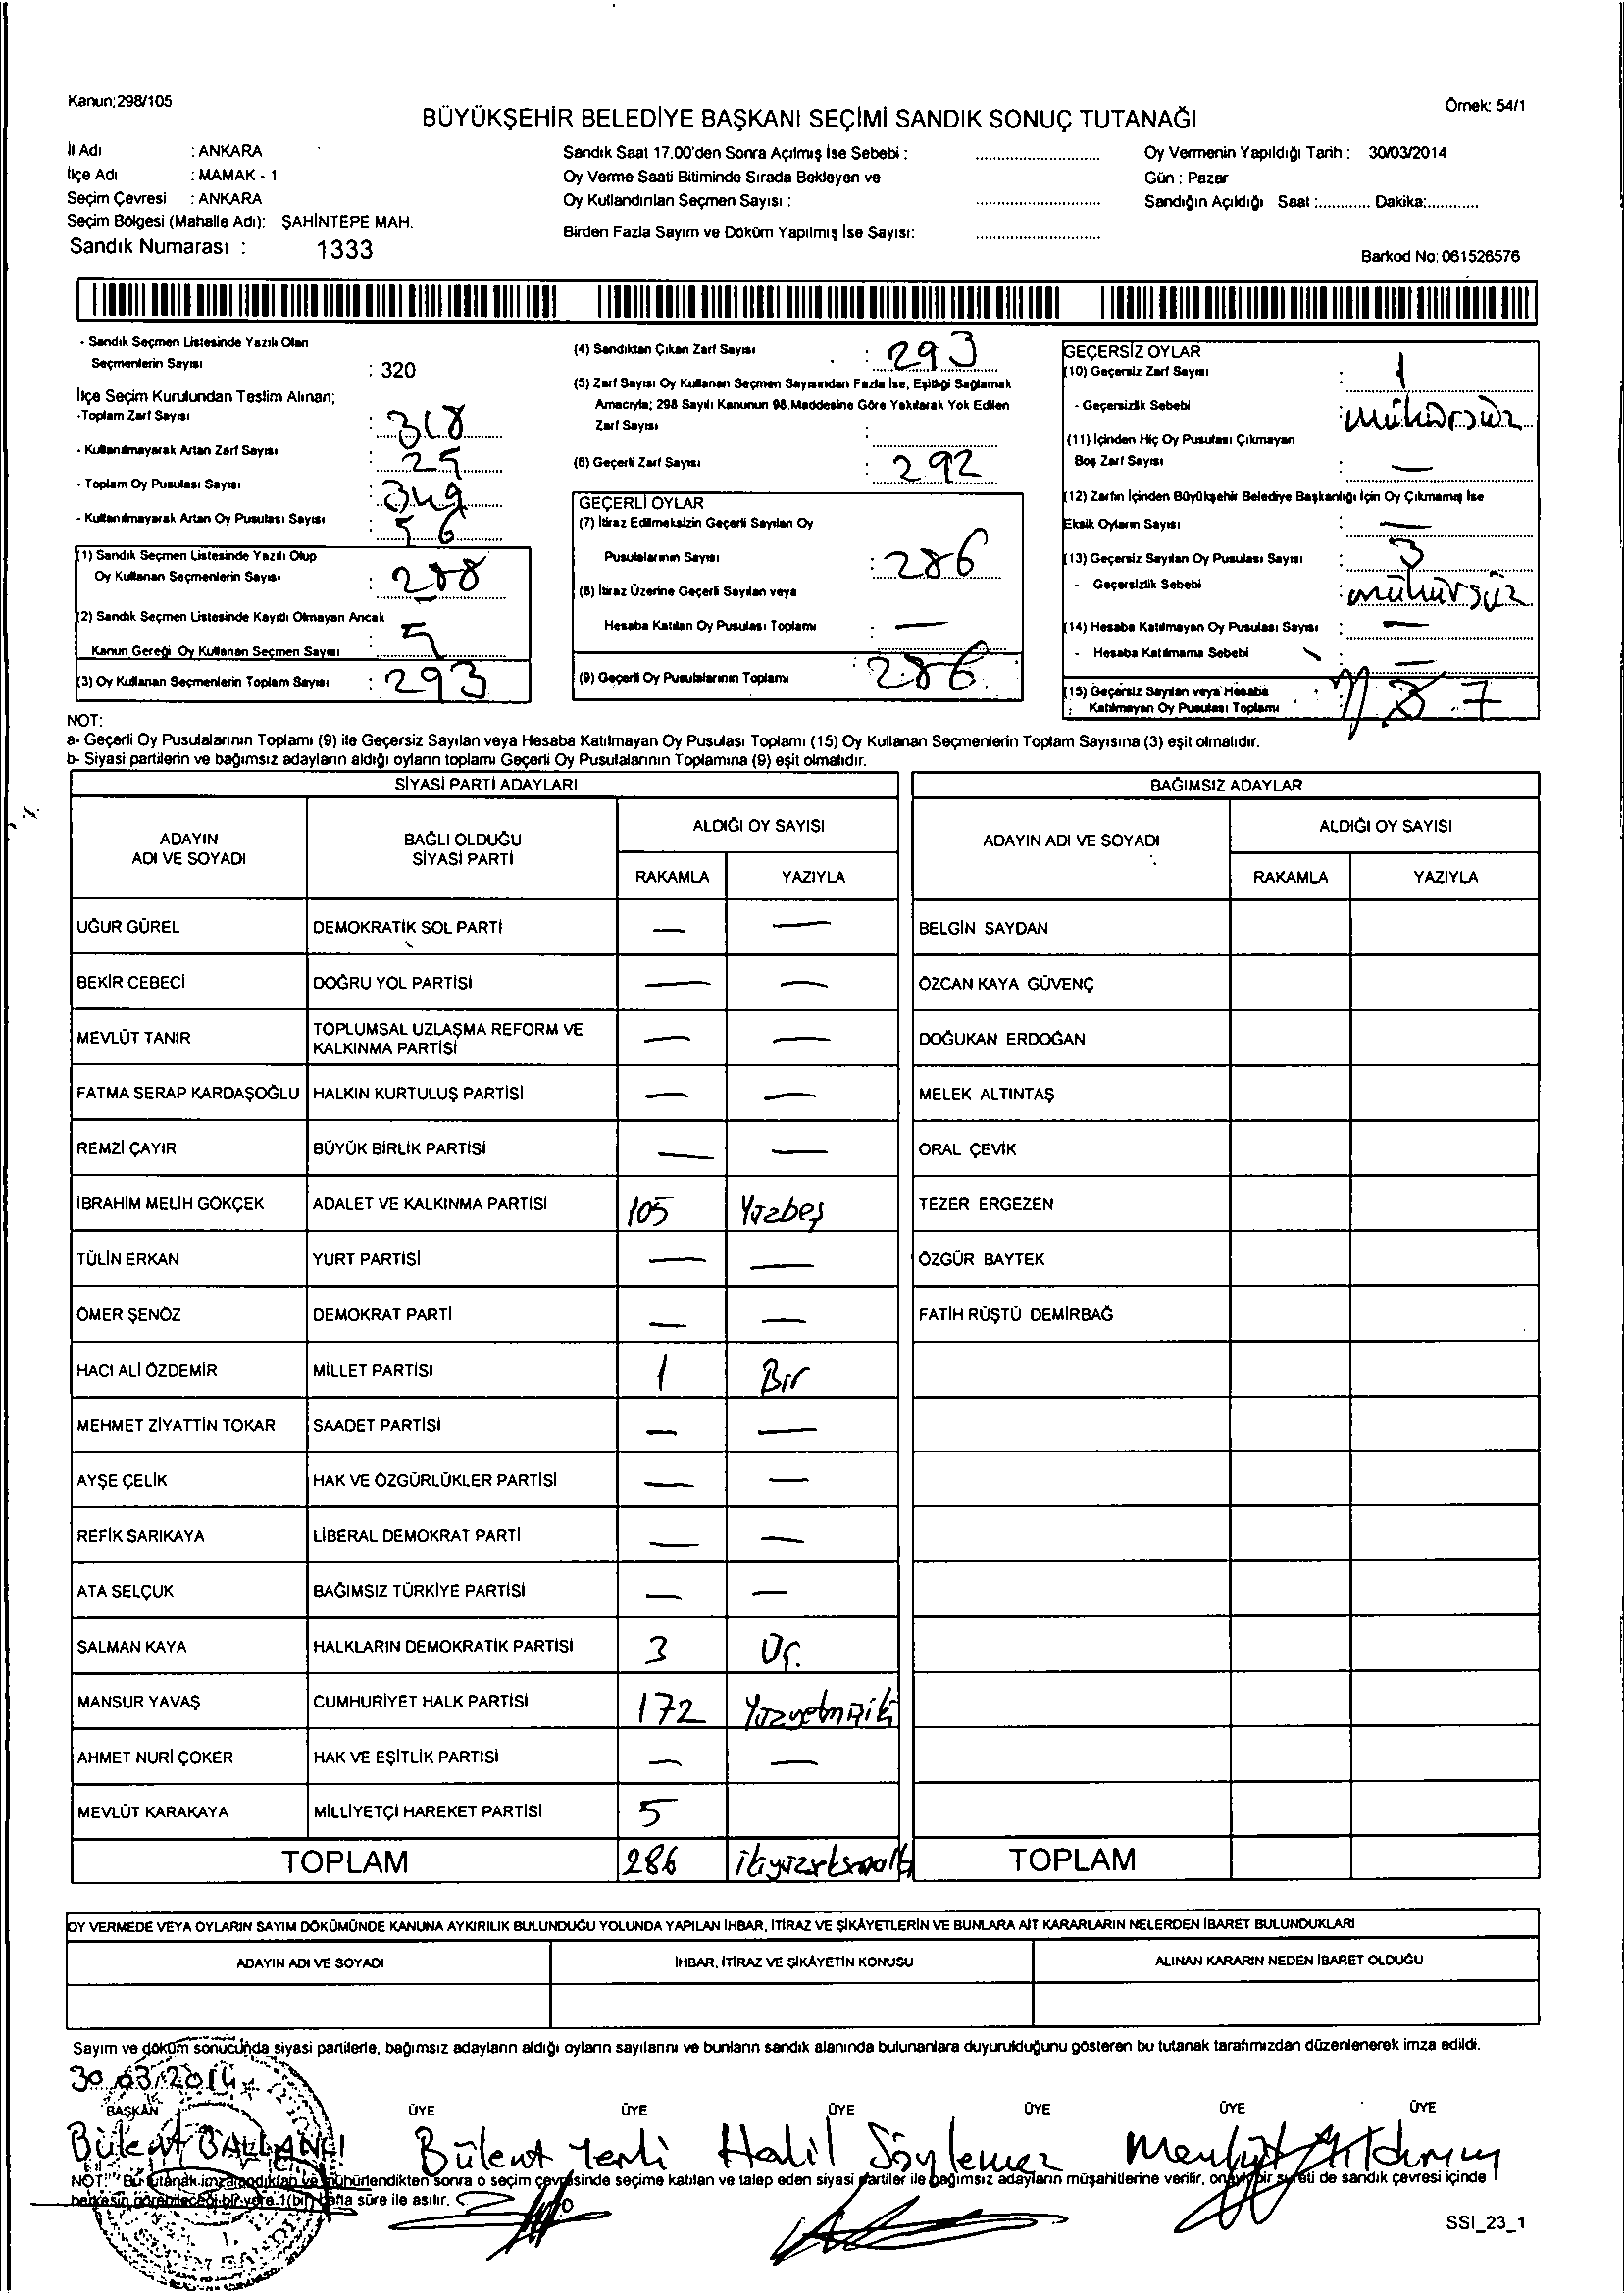 Kanun:298/105
Örnek: 54/1
BÜYÜKŞEHİR BELEDİYE BAŞKANI SEÇİMİ SANDIK SONUÇ TUTANAĞI
İl Adı : ANKARA
İlçe Adı : MAMAK - 1
Seçim Çevresi : ANKARA
Seçim Bölgesi (Mahalle Adı): ŞAHİNTEPE MAH.
Sandık Numarası : 1333
Sandık Saat 17.00'den Sonra Açılmış İse Sebebi :
Oy Verme Saati Bitiminde Sırada Bekleyen ve
Oy Kullandırılan Seçmen Sayısı :
Birden Fazla Sayım ve Döküm Yapılmış İse Sayısı:
Oy Vermenin Yapıldığı Tarih : 30/03/2014
Gün : Pazar
Sandığın Açıldığı Saat :............ Dakika:............
Barkod No: 061526576
- Sandık Seçmen Listesinde Yazılı Olan
Seçmenlerin Sayısı : 320
İlçe Seçim Kurulundan Teslim Alınan;
-Toplam Zarf Sayısı : 318
- Kullanılmayarak Artan Zarf Sayısı : 25
- Toplam Oy Pusulası Sayısı : 349
- Kullanılmayarak Artan Oy Pusulası Sayısı : 56
(1) Sandık Seçmen Listesinde Yazılı Olup
Oy Kullanan Seçmenlerin Sayısı : 288
(2) Sandık Seçmen Listesinde Kayıtlı Olmayan Ancak
Kanun Gereği Oy Kullanan Seçmen Sayısı : 5
(3) Oy Kullanan Seçmenlerin Toplam Sayısı : 293
(4) Sandıktan Çıkan Zarf Sayısı : 293
(5) Zarf Sayısı Oy Kullanan Seçmen Sayısından Fazla İse, Eşitliği Sağlamak
Amacıyla; 298 Sayılı Kanunun 98.Maddesine Göre Yakılarak Yok Edilen
Zarf Sayısı :
(6) Geçerli Zarf Sayısı : 292
GEÇERLİ OYLAR
(7) İtiraz Edilmeksizin Geçerli Sayılan Oy
Pusulalarının Sayısı : 286
(8) İtiraz Üzerine Geçerli Sayılan veya
Hesaba Katılan Oy Pusulası Toplamı : —
(9) Geçerli Oy Pusulalarının Toplamı : 286
GEÇERSİZ OYLAR
(10) Geçersiz Zarf Sayısı : 1
- Geçersizlik Sebebi : mühürsüz
(11) İçinden Hiç Oy Pusulası Çıkmayan
Boş Zarf Sayısı : —
(12) Zarfın İçinden Büyükşehir Belediye Başkanlığı İçin Oy Çıkmamış İse
Eksik Oyların Sayısı : —
(13) Geçersiz Sayılan Oy Pusulası Sayısı : 3
- Geçersizlik Sebebi : mühürsüz
(14) Hesaba Katılmayan Oy Pusulası Sayısı : —
- Hesaba Katılmama Sebebi : —
(15) Geçersiz Sayılan veya Hesaba
Katılmayan Oy Pusulası Toplamı : 7
NOT:
a- Geçerli Oy Pusulalarının Toplamı (9) ile Geçersiz Sayılan veya Hesaba Katılmayan Oy Pusulası Toplamı (15) Oy Kullanan Seçmenlerin Toplam Sayısına (3) eşit olmalıdır.
b- Siyasi partilerin ve bağımsız adayların aldığı oyların toplamı Geçerli Oy Pusulalarının Toplamına (9) eşit olmalıdır.
SİYASİ PARTİ ADAYLARI
ADAYIN ADI VE SOYADI BAĞLI OLDUĞU SİYASİ PARTİ ALDIĞI OY SAYISI
RAKAMLA YAZIYLA
UĞUR GÜREL DEMOKRATİK SOL PARTİ — —
BEKİR CEBECİ DOĞRU YOL PARTİSİ — —
MEVLÜT TANIR TOPLUMSAL UZLAŞMA REFORM VE KALKINMA PARTİSİ — —
FATMA SERAP KARDAŞOĞLU HALKIN KURTULUŞ PARTİSİ — —
REMZİ ÇAYIR BÜYÜK BİRLİK PARTİSİ — —
İBRAHİM MELİH GÖKÇEK ADALET VE KALKINMA PARTİSİ 105 Yüzbeş
TÜLİN ERKAN YURT PARTİSİ — —
ÖMER ŞENÖZ DEMOKRAT PARTİ — —
HACI ALİ ÖZDEMİR MİLLET PARTİSİ 1 Bir
MEHMET ZİYATTİN TOKAR SAADET PARTİSİ — —
AYŞE ÇELİK HAK VE ÖZGÜRLÜKLER PARTİSİ — —
REFİK SARIKAYA LİBERAL DEMOKRAT PARTİ — —
ATA SELÇUK BAĞIMSIZ TÜRKİYE PARTİSİ — —
SALMAN KAYA HALKLARIN DEMOKRATİK PARTİSİ 3 Üç.
MANSUR YAVAŞ CUMHURİYET HALK PARTİSİ 172 Yüzyetmişiki
AHMET NURİ ÇOKER HAK VE EŞİTLİK PARTİSİ — —
MEVLÜT KARAKAYA MİLLİYETÇİ HAREKET PARTİSİ 5
TOPLAM 286 ikiyüzseksenaltı
BAĞIMSIZ ADAYLAR
ADAYIN ADI VE SOYADI ALDIĞI OY SAYISI
RAKAMLA YAZIYLA
BELGİN SAYDAN
ÖZCAN KAYA GÜVENÇ
DOĞUKAN ERDOĞAN
MELEK ALTINTAŞ
ORAL ÇEVİK
TEZER ERGEZEN
ÖZGÜR BAYTEK
FATİH RÜŞTÜ DEMİRBAĞ
TOPLAM
OY VERMEDE VEYA OYLARIN SAYIM DÖKÜMÜNDE KANUNA AYKIRILIK BULUNDUĞU YOLUNDA YAPILAN İHBAR, İTİRAZ VE ŞİKÂYETLERİN VE BUNLARA AİT KARARLARIN NELERDEN İBARET BULUNDUKLARI
ADAYIN ADI VE SOYADI İHBAR, İTİRAZ VE ŞİKÂYETİN KONUSU ALINAN KARARIN NEDEN İBARET OLDUĞU
Sayım ve döküm sonucunda siyasi partilerle, bağımsız adayların aldığı oyların sayılarını ve bunların sandık alanında bulunanlara duyurulduğunu gösteren bu tutanak tarafımızdan düzenlenerek imza edildi.
30.03.2014
BAŞKAN ÜYE ÜYE ÜYE ÜYE ÜYE ÜYE
Bülent BALLANLI Bülent Yerli Halil Söylemez Mevlüt Yıldırım
NOT: Bu tutanak imzalandıktan ve mühürlendikten sonra o seçim çevresinde seçime katılan ve talep eden siyasi partiler ile bağımsız adayların müşahitlerine verilir, onaylı bir sureti de sandık çevresi içinde
herkesin görebileceği bir yere 1(bir) hafta süre ile asılır.
SSI_23_1